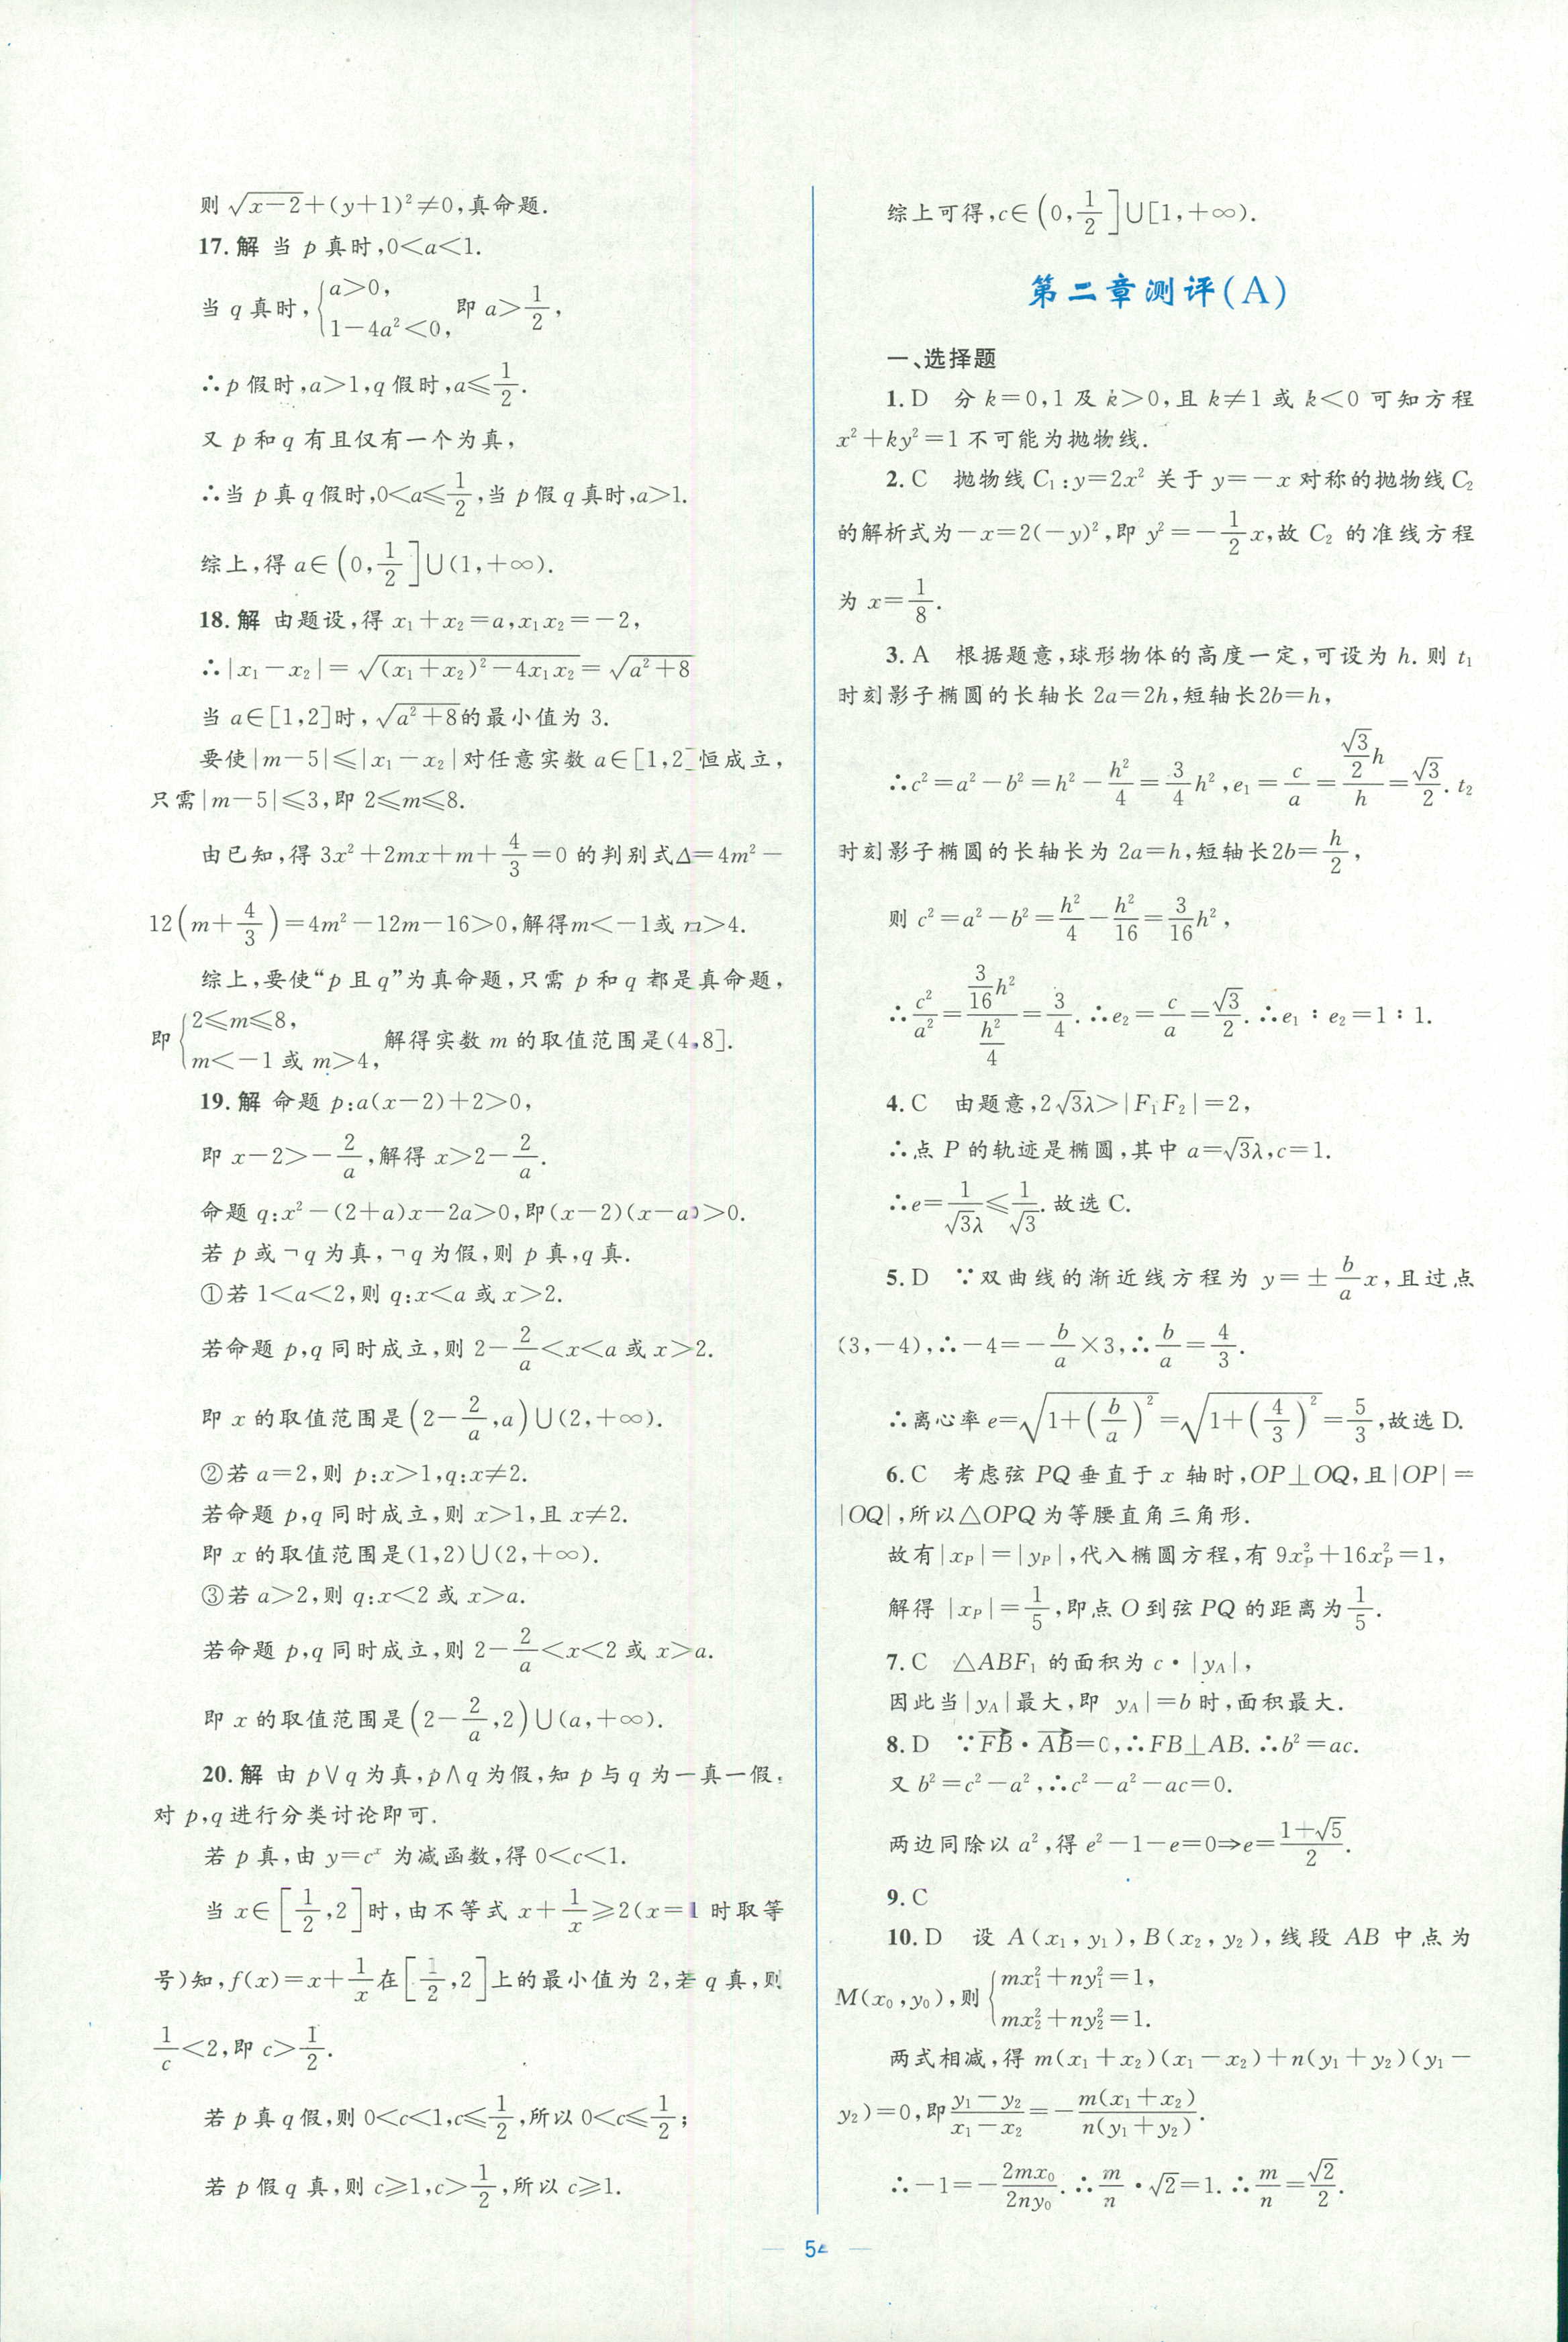 则 √(x-2)+(y+1)²≠0,真命题.
17.解 当 p 真时,0<a<1.
当 q 真时,{a>0, 1-4a²<0, 即 a>1/2,
∴p 假时,a>1,q 假时,a≤1/2.
又 p 和 q 有且仅有一个为真,
∴当 p 真 q 假时,0<a≤1/2,当 p 假 q 真时,a>1.
综上,得 a∈(0,1/2]∪(1,+∞).
18.解 由题设,得 x₁+x₂=a,x₁x₂=-2,
∴|x₁-x₂|=√((x₁+x₂)²-4x₁x₂)=√(a²+8)
当 a∈[1,2]时,√(a²+8)的最小值为 3.
要使|m-5|≤|x₁-x₂|对任意实数 a∈[1,2]恒成立,
只需|m-5|≤3,即 2≤m≤8.
由已知,得 3x²+2mx+m+4/3=0 的判别式Δ=4m²-
12(m+4/3)=4m²-12m-16>0,解得m<-1或 m>4.
综上,要使“p 且 q”为真命题,只需 p 和 q 都是真命题,
即{2≤m≤8, m<-1 或 m>4, 解得实数 m 的取值范围是(4,8].
19.解 命题 p:a(x-2)+2>0,
即 x-2>-2/a,解得 x>2-2/a.
命题 q:x²-(2+a)x-2a>0,即(x-2)(x-a)>0.
若 p 或¬q 为真,¬q 为假,则 p 真,q 真.
①若 1<a<2,则 q:x<a 或 x>2.
若命题 p,q 同时成立,则 2-2/a<x<a 或 x>2.
即 x 的取值范围是(2-2/a,a)∪(2,+∞).
②若 a=2,则 p:x>1,q:x≠2.
若命题 p,q 同时成立,则 x>1,且 x≠2.
即 x 的取值范围是(1,2)∪(2,+∞).
③若 a>2,则 q:x<2 或 x>a.
若命题 p,q 同时成立,则 2-2/a<x<2 或 x>a.
即 x 的取值范围是(2-2/a,2)∪(a,+∞).
20.解 由 p∨q 为真,p∧q 为假,知 p 与 q 为一真一假,
对 p,q 进行分类讨论即可.
若 p 真,由 y=cˣ 为减函数,得 0<c<1.
当 x∈[1/2,2]时,由不等式 x+1/x≥2(x=1 时取等
号)知,f(x)=x+1/x在[1/2,2]上的最小值为 2,若 q 真,则
1/c<2,即 c>1/2.
若 p 真 q 假,则 0<c<1,c≤1/2,所以 0<c≤1/2;
若 p 假 q 真,则 c≥1,c>1/2,所以 c≥1.
综上可得,c∈(0,1/2]∪[1,+∞).
第二章测评(A)
一、选择题
1.D 分 k=0,1 及 k>0,且 k≠1 或 k<0 可知方程
x²+ky²=1 不可能为抛物线.
2.C 抛物线 C₁:y=2x² 关于 y=-x 对称的抛物线 C₂
的解析式为-x=2(-y)²,即 y²=-1/2x,故 C₂ 的准线方程
为 x=1/8.
3.A 根据题意,球形物体的高度一定,可设为 h.则 t₁
时刻影子椭圆的长轴长 2a=2h,短轴长2b=h,
∴c²=a²-b²=h²-h²/4=3/4h²,e₁=c/a=(√3/2h)/h=√3/2.t₂
时刻影子椭圆的长轴长为 2a=h,短轴长2b=h/2,
则 c²=a²-b²=h²/4-h²/16=3/16h²,
∴c²/a²=(3/16h²)/(h²/4)=3/4.∴e₂=c/a=√3/2.∴e₁∶e₂=1∶1.
4.C 由题意,2√3λ>|F₁F₂|=2,
∴点 P 的轨迹是椭圆,其中 a=√3λ,c=1.
∴e=1/(√3λ)≤1/√3.故选 C.
5.D ∵双曲线的渐近线方程为 y=±b/a x,且过点
(3,-4),∴-4=-b/a×3,∴b/a=4/3.
∴离心率 e=√(1+(b/a)²)=√(1+(4/3)²)=5/3,故选 D.
6.C 考虑弦 PQ 垂直于 x 轴时,OP⊥OQ,且|OP|=
|OQ|,所以△OPQ 为等腰直角三角形.
故有|x_P|=|y_P|,代入椭圆方程,有 9x_P²+16x_P²=1,
解得 |x_P|=1/5,即点 O 到弦 PQ 的距离为1/5.
7.C △ABF₁ 的面积为 c·|y_A|,
因此当|y_A|最大,即|y_A|=b 时,面积最大.
8.D ∵FB→·AB→=0,∴FB⊥AB.∴b²=ac.
又 b²=c²-a²,∴c²-a²-ac=0.
两边同除以 a²,得 e²-1-e=0⇒e=(1+√5)/2.
9.C
10.D 设 A(x₁,y₁),B(x₂,y₂),线段 AB 中点为
M(x₀,y₀),则{mx₁²+ny₁²=1, mx₂²+ny₂²=1.
两式相减,得 m(x₁+x₂)(x₁-x₂)+n(y₁+y₂)(y₁-
y₂)=0,即(y₁-y₂)/(x₁-x₂)=-m(x₁+x₂)/n(y₁+y₂).
∴-1=-2mx₀/2ny₀.∴m/n·√2=1.∴m/n=√2/2.
54